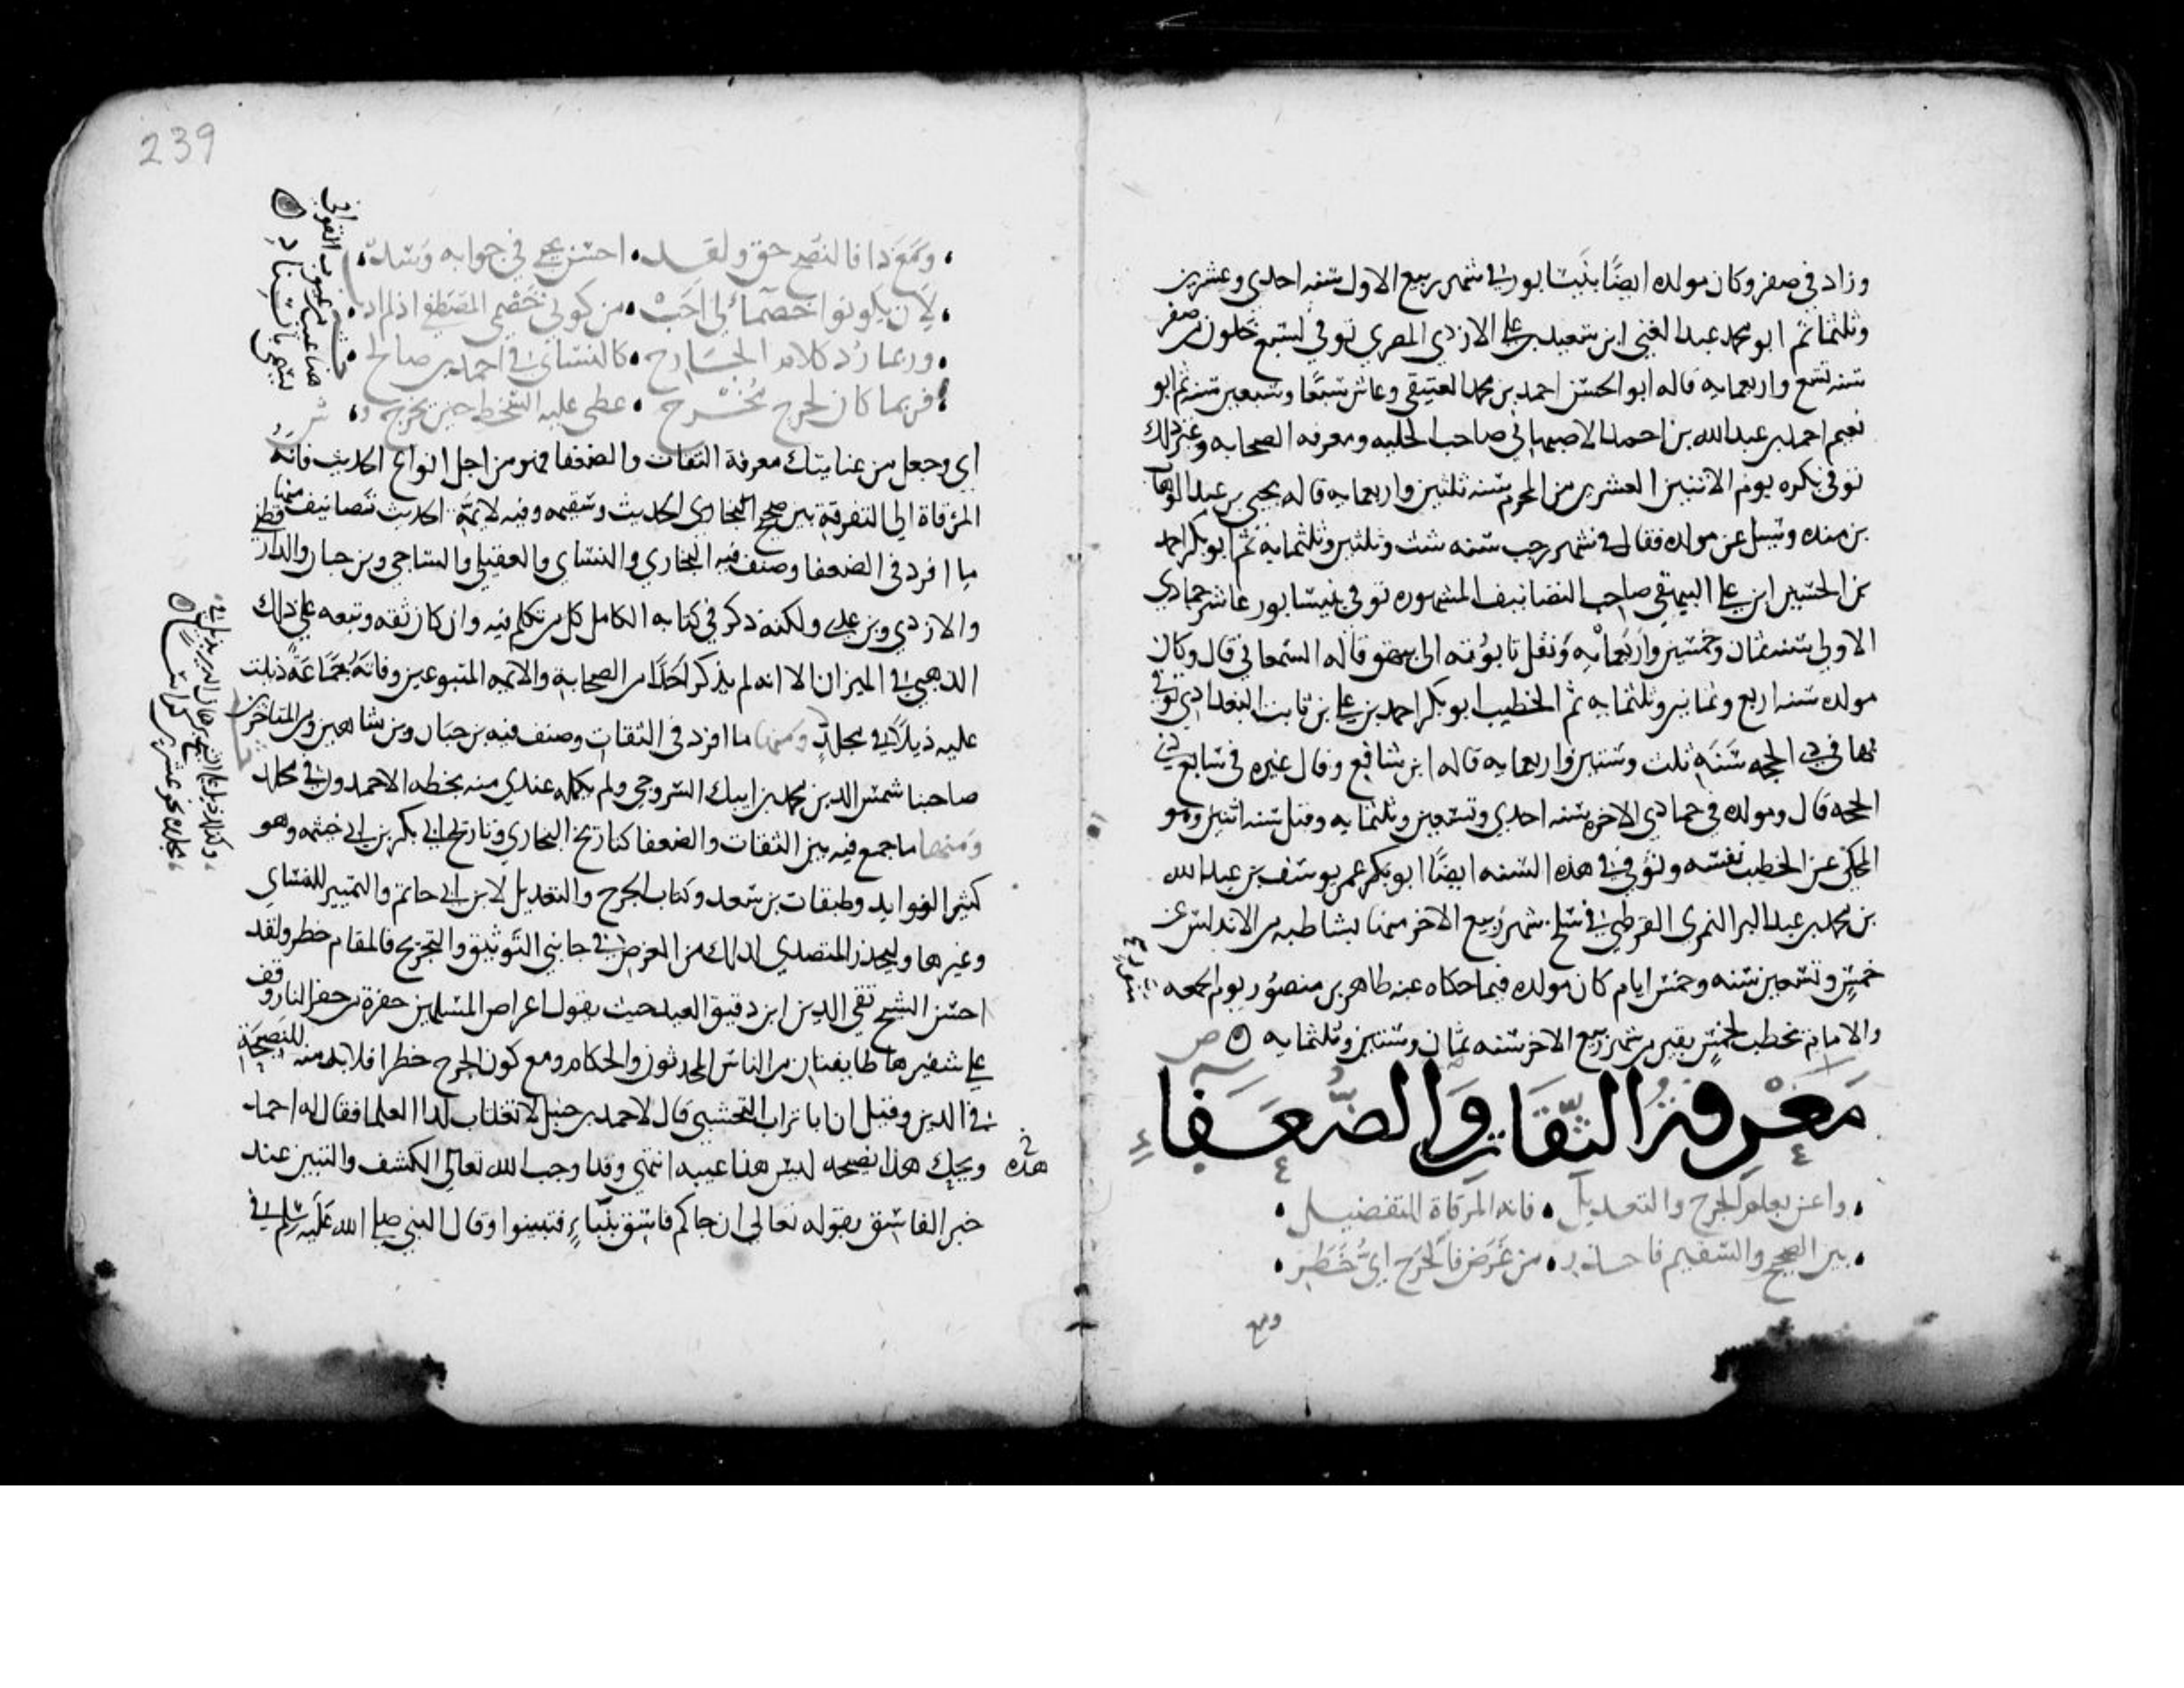 وزاد في صفر وكان مولده ايضًا بنيسابور في شهر ربيع الاول سنه احدي وعشرين
وثلثمائه ثم ابو محمد عبد الغني ابن سعيد بن علي الازدي المصري توفي لسبع خلون من صفر
سنه تسع واربعمايه قاله ابو الحسن احمد بن محمد العتيقي وعاش سبعًا وسبعين سنه ثم ابو
نعيم احمد بن عبد الله بن احمد الاصبهاني صاحب الحليه ومعرفه الصحابه وغير ذلك
توفي بكره يوم الاثنين العشرين من المحرم سنه ثلثين واربعمايه قاله يحيي بن عبد الوهاب
بن منده وسيل عن مولده فقال في شهر رجب سنه ست وثلثين وثلثمايه ثم ابو بكر احمد
بن الحسين ابن علي البيهقي صاحب التصانيف المشهوره توفي بنيسابور عاشر جمادي
الاولي سنه ثمان وخمسين واربعمايه ونقل تابوته الي بيهق قاله السمعاني قال وكان
مولده سنه اربع وثمانين وثلثمايه ثم الخطيب ابو بكر احمد بن علي بن ثابت البغدادي توفي
بها في ذي الحجه سَنَه ثلث وستين واربعمايه قاله ابن شافع وقال غيره في سابع ذي
الحجه قال ومولده في جمادي الاخره سنه احدي وتسعين وثلثمايه وقيل سنه اثنين وهو
المحكي عن الخطيب نفسه وتوفي في هذه السنه ايضًا ابو بكر عمر يوسف بن عبد الله
بن محمد بن عبد البر النمري القرطبي في سلخ شهر ربيع الاخر منها بشاطبه من الاندلس عن
خمسٍ وتسعين سنه وخمس ايام كان مولده فيما حكاه عنه طاهر بن منصور يوم الجمعه
والامام يخطب لخمسٍ بقين من شهر ربيع الاخر سنه ثمان وستين وثلثمايه ص
مَعْرِفةُ الثِّقَاتِ وَالضُّعَفَاءِ
واعن بعلم الجرح والتعديل • فانه المرقاة للتفضيل
بين الصحيح والسقيم فاحذر • من غَرَضٍ فالجَرح ايُّ خَطَر
ومع
239
ومَعَ ذا فالنصح حق ولقد • احسن يحيي في جوابه وسد
لأن يكونوا خصمائي أحَبّ • من كوني خَصْمي المصطفي اذ لم اذب
وربما رُد كلام الجارح • كالنسائي في احمد بن صالح
فربما كان لجرح مَخْرج • غطي عليه السخط حين يحرج ش
هذا عيب من عيوب القوافي
يسمي بالسناد
اي وجعل من عنايتك معرفة الثقات والضعفا فهو من اجل انواع الحديث فانه
المرقاة الي التفرقة بين صحيح الحديث وسقيمه وفيه لائمة الحديث تصانيف منها
ما افرد في الضعفا وصنف فيه البخاري والنساي والعقيلي والساجي وبن حبان والدارقطني
والازدي وبن عدي ولكنه ذكر في كتابه الكامل كل من تكلم فيه وان كان ثقه وتبعه علي ذلك
الذهبي في الميزان الا انه لم يذكر احدًا من الصحابة والائمه المتبوعين وفاته جماعَةٌ ذيلت
عليه ذيلًا في مجلد ومنها ما افرد في الثقات وصنف فيه بن حبان وبن شاهين ومن المتاخرين
صاحبنا شمس الدين محمد بن ايبك السروجي ولم يكمله عندي منه بخطه الاحمدون في مجلد
ومنها ما جمع فيه بين الثقات والضعفا كتاريخ البخاري وتاريخ ابي بكر بن ابي خيثمه وهو
كثير الفوايد وطبقات بن سعد وكتاب الجرح والتعديل لابن ابي حاتم والتمييز للنساي
وغيرها وليحذر المتصدي لذلك من الغرض في جانبي التوثيق والتجريح فالمقام خطر ولقد
احسن الشيخ تقي الدين ابن دقيق العيد حيث يقول اعراض المسلمين حفرة من حفر النار وقف
علي شفيرها طايفتان من الناس المحدثون والحكام ومع كون الجرح خطرا فلا بد منه للنصيحة
في الدين وقيل ان ابا تراب النخشبي قال لاحمد بن حنبل لا تغتاب لدا العلما فقال له احمد
ويحك هذا نصيحه ليس هذا غيبه انتهي وقد اوجب الله تعالي الكشف والتبين عند
هذه
خبر الفاسق بقوله تعالي ان جاكم فاسق بنباءٍ فتبينوا وقال النبي صلي الله عليه وسلم في